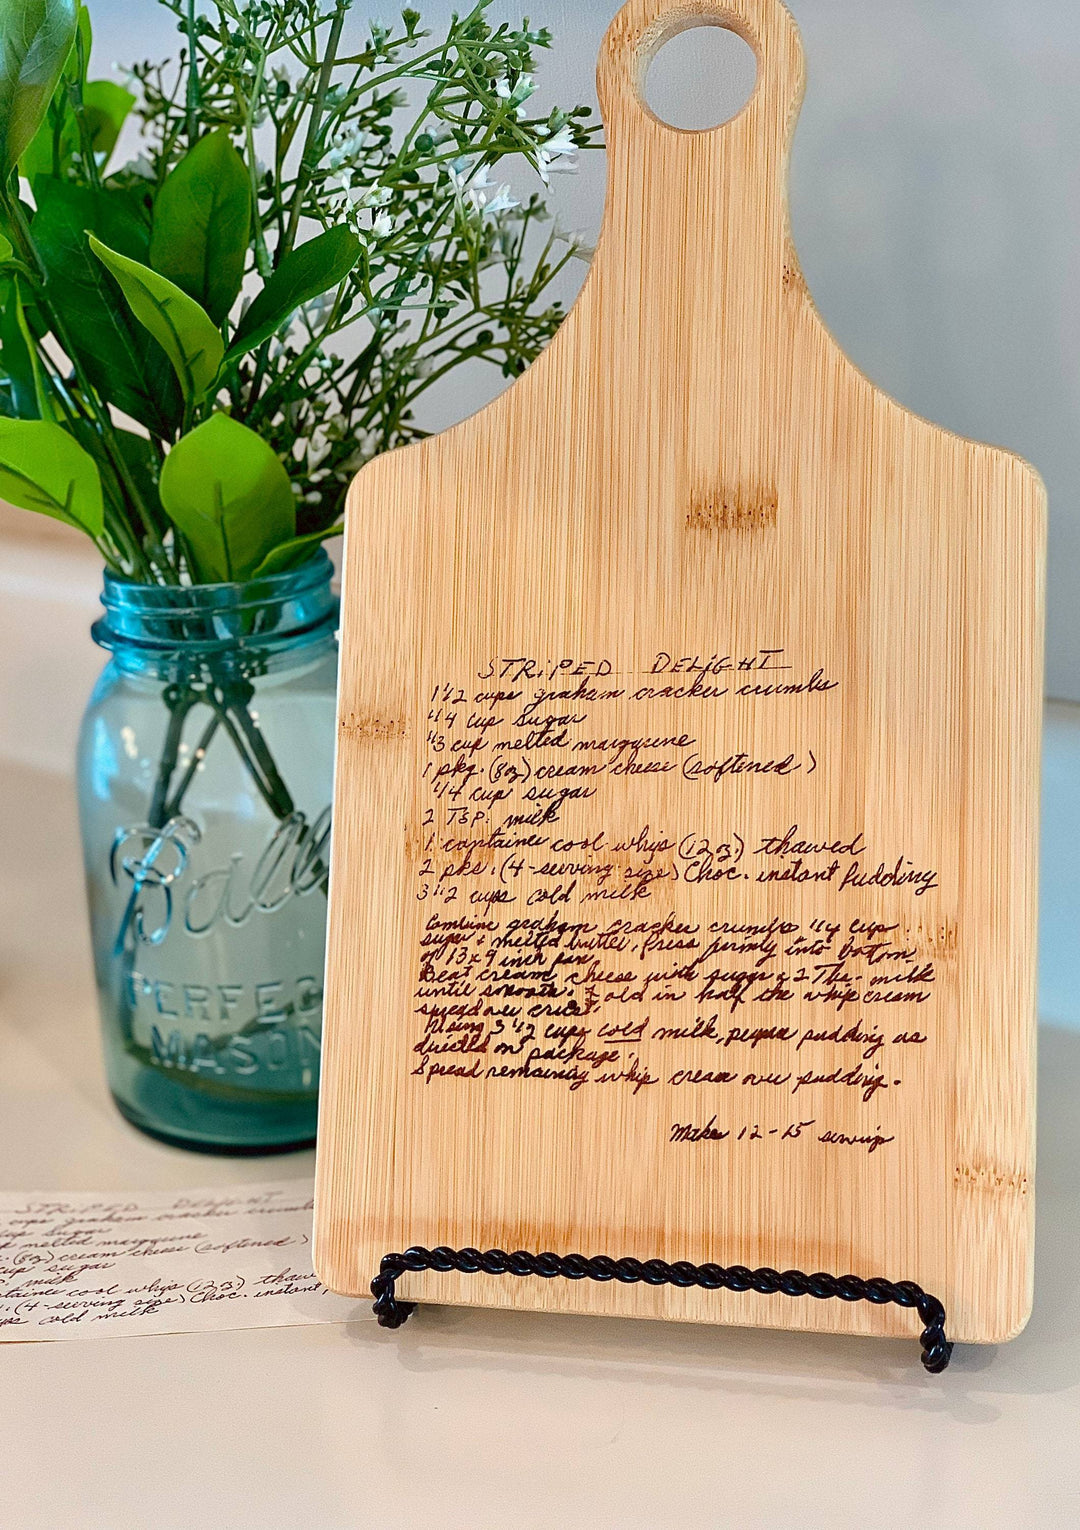 STRIPED DELIGHT
1 1/2 cups graham cracker crumbs
1/4 cup sugar
1/3 cup melted margarine
1 pkg. (8oz) cream cheese (softened)
1/4 cup sugar
2 TSP. milk
1 container cool whip (12 oz.) thawed
2 pks. (4-serving size) Choc. instant pudding
3 1/2 cups cold milk
Combine graham cracker crumbs 1/4 cup
sugar + melted butter, Press firmly into bottom
of 13x9 inch pan.
Beat cream cheese with sugar & 2 Tbs. milk
until smooth. Fold in half the whip cream
spread over crust.
Using 3 1/2 cups cold milk, prepare pudding as
directed on package.
Spread remaining whip cream over pudding.
Makes 12-15 servings
Ball
PERFEC
MASON
STRIPED DELIGHT
cups graham cracker crumbs
cup sugar
melted margarine
(8oz) cream cheese (softened)
cup sugar
milk
container cool whip (12 oz.) thaw
(4-serving size) Choc. instant
cold milk